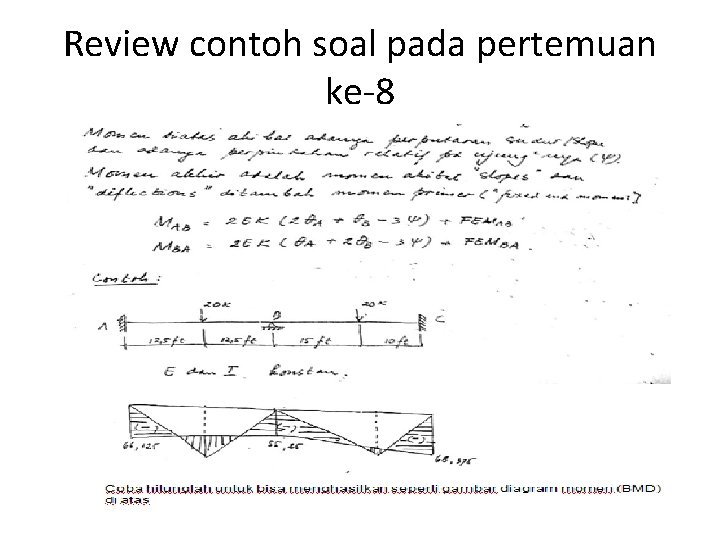 Review contoh soal pada pertemuan
ke-8
Momen diatas akibat adanya perputaran sudut/slope
dan adanya perpindahan relatif pd ujung²nya (Ψ).
Momen akhir adalah momen akibat "slopes" dan
"diflections" ditambah momen primer ("fixed end moment")
M_AB = 2EK (2θ_A + θ_B - 3Ψ) + FEM_AB
M_BA = 2EK (θ_A + 2θ_B - 3Ψ) + FEM_BA
Contoh:
20K B 20K
A C
12,5 ft 12,5 ft 15 ft 10 ft
E dan I konstan.
(-) (-) (-)
66,125 55,25 68,975
Coba hitunglah untuk bisa menghasilkan seperti gambar diagram momen (BMD)
di atas